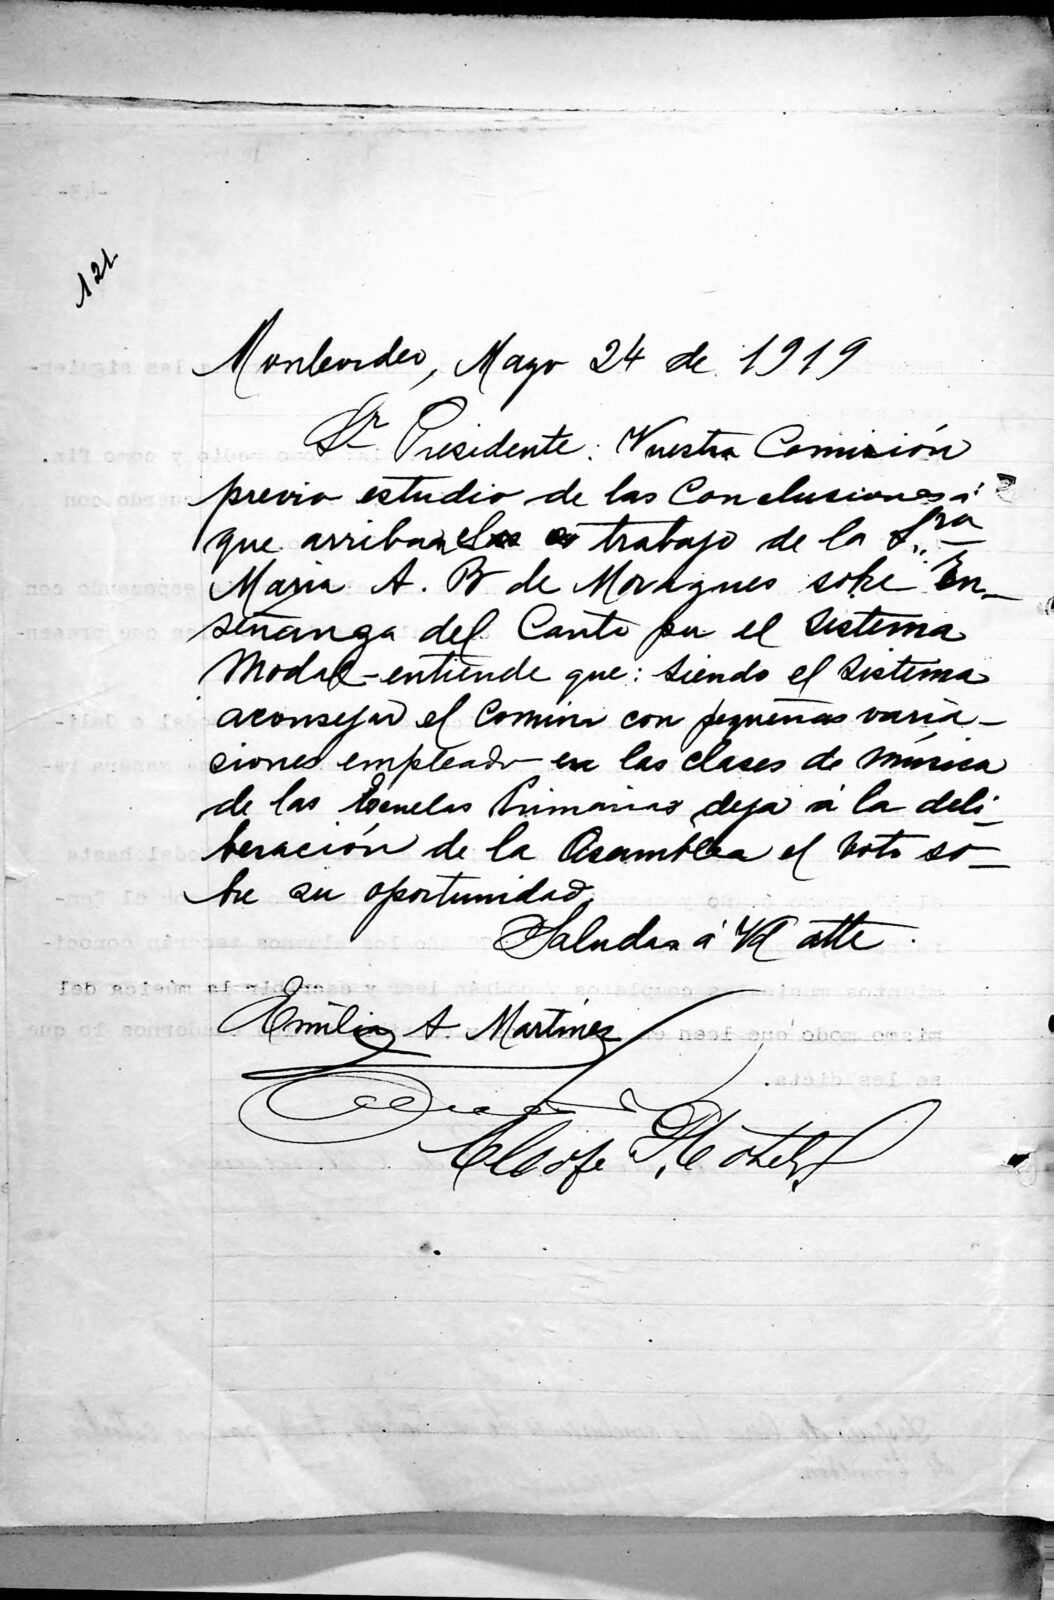 121
Montevideo, Mayo 24 de 1919
Sr Presidente: Nuestra Comisión
previo estudio de las Conclusiones á
que arriba el trabajo de la Sra
Maria A. B de Moragues sobre En-
señanza del Canto por el Sistema
Modal-entiende que: siendo el sistema
aconsejado el comun con pequeñas varia-
ciones empleado en las clases de música
de las Escuelas Primarias deja á la deli-
beración de la Asamblea el voto so-
bre su oportunidad.
Saludan á Vd atte.
Emilia A. Martínez